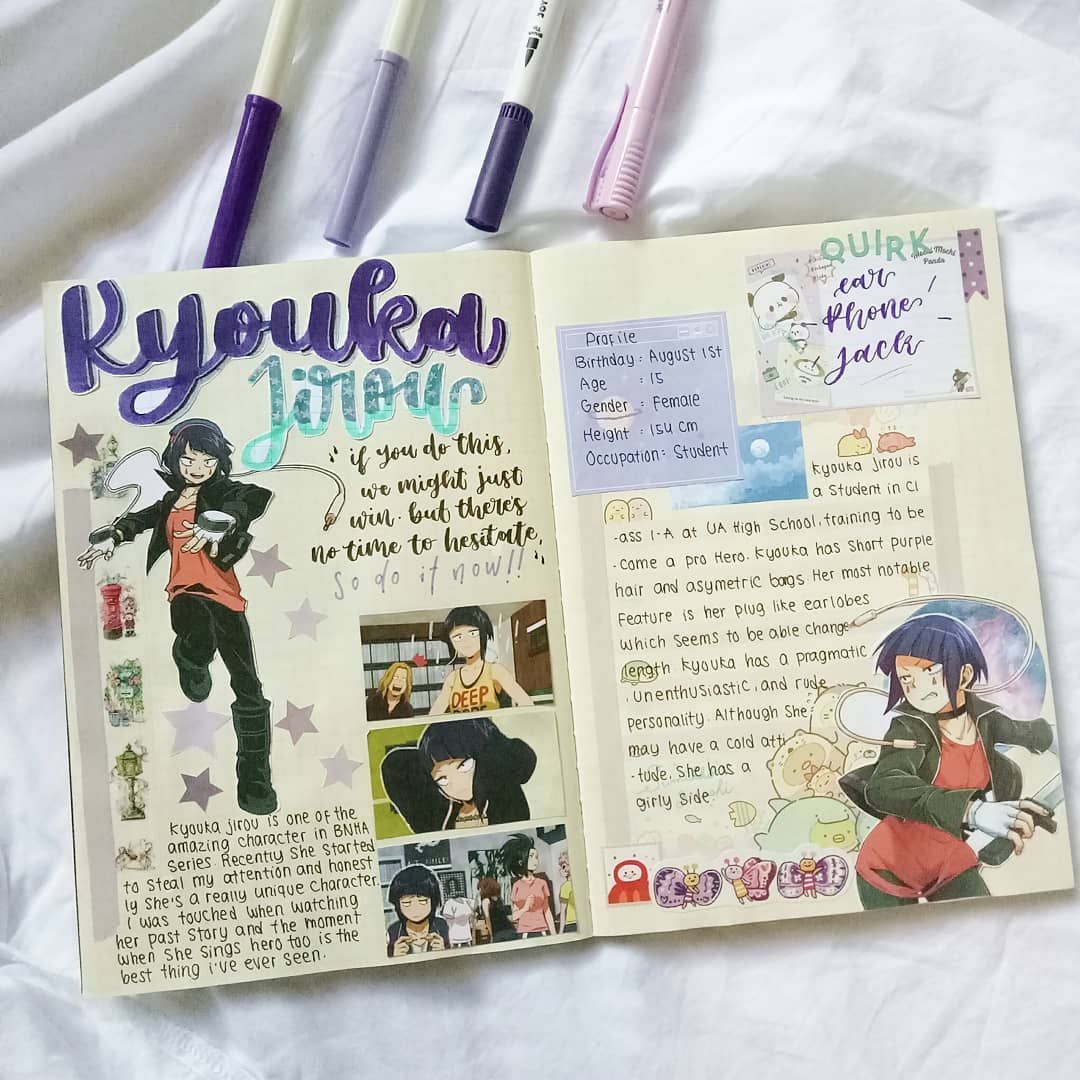 Kyouka
Jirou
"if you do this,
we might just
win. but there's
no time to hesitate,
so do it now!!"
DEEP
Kyouka jirou is one of the
amazing character in BNHA
Series. Recently She Started
to Steal my attention and honest
ly She's a really unique Character.
I was touched when watching
her past Story and the moment
when She Sings hero too is the
best thing i've ever Seen.
QUIRK
Mochi Mochi
Panda
ear
Phone
jack
Profile
Birthday : August 1st
Age : 15
Gender : Female
Height : 154 cm
Occupation : Student
Kyouka Jirou is
a Student in Cl
-ass 1-A at UA High School, training to be
-come a pro Hero. Kyouka has Short Purple
hair and asymetric bangs. Her most notable
Feature is her plug like earlobes
which Seems to be able change
length Kyouka has a pragmatic
, unenthusiastic, and rude
personality. Although She
may have a cold atti
-tude, She has a
girly Side.